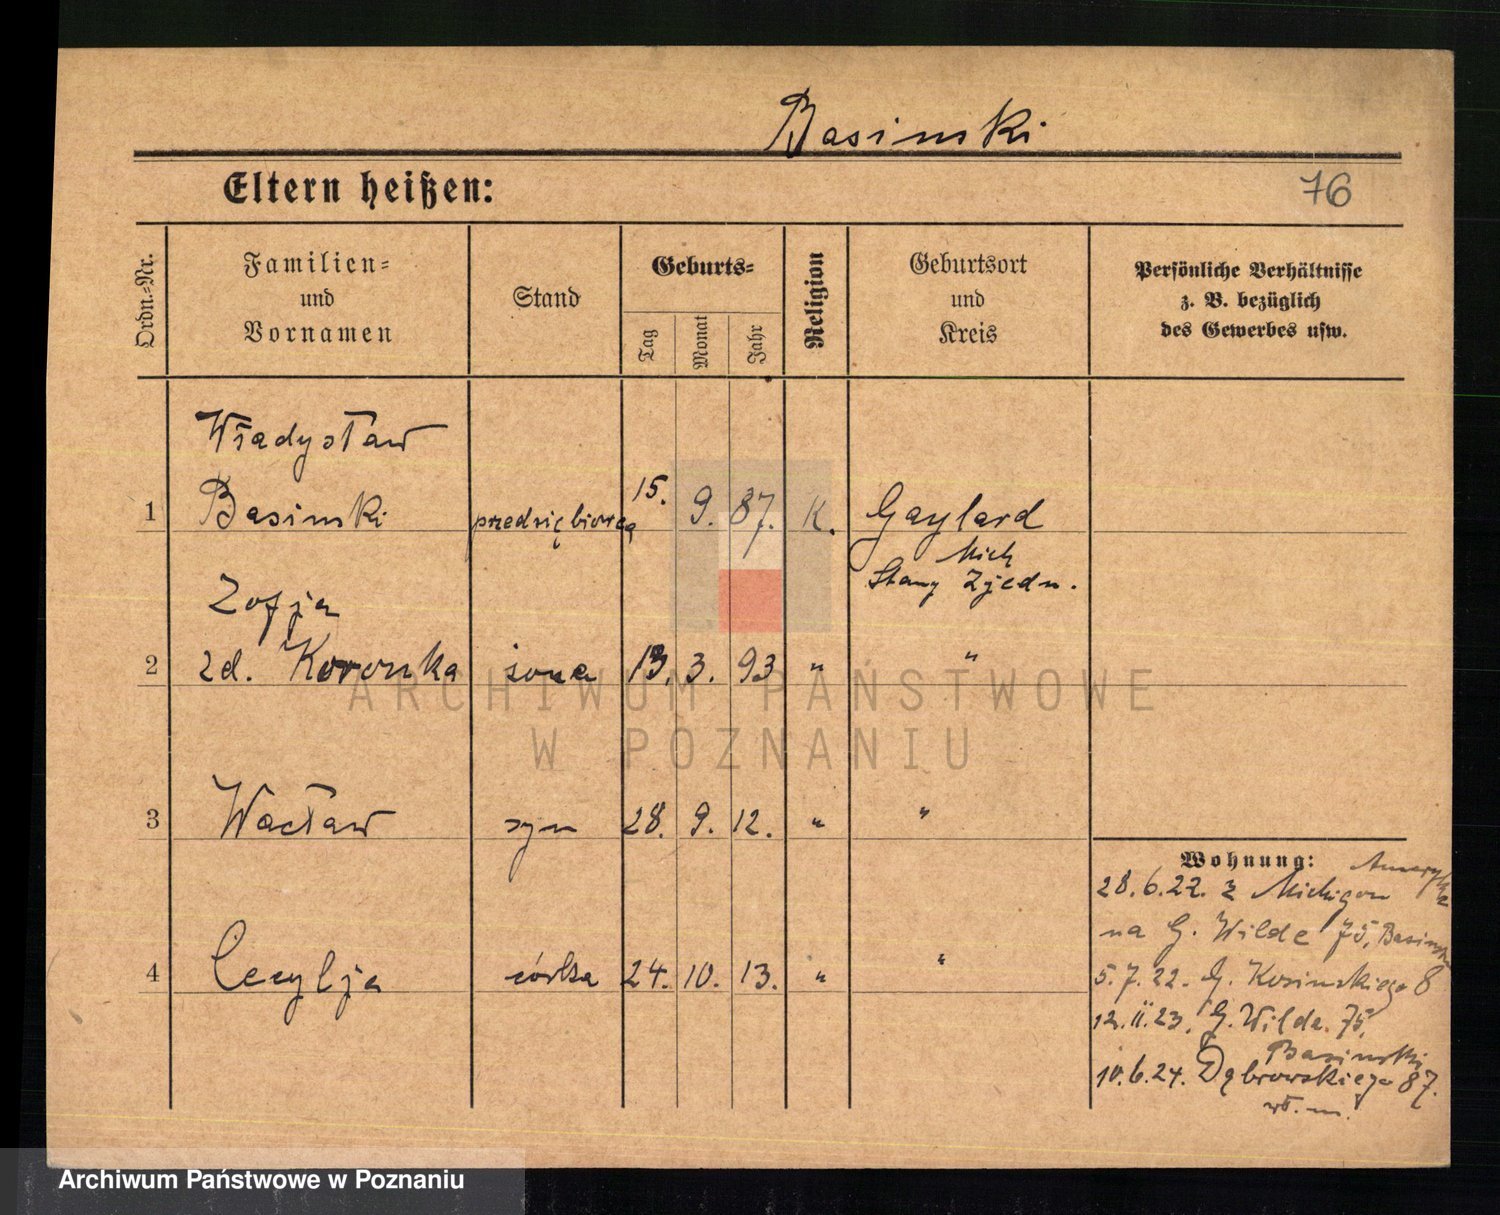 Basinski
Eltern heißen:
76
Ordn.-Nr.
Familien-
und
Vornamen
Stand
Geburts-
Tag
Monat
Jahr
Religion
Geburtsort
und
Kreis
Persönliche Verhältnisse
z. B. bezüglich
des Gewerbes usw.
Władysław
1 Basinski przedsiębiorca 15. 9. 87. K. Gaylard
Mich
Stany Zjedn.
Zofja
2 zd. Koronka żona 13. 3. 93 " "
3 Wacław syn 28. 9. 12. " "
4 Cecylja córka 24. 10. 13. " "
Wohnung:
Ameryka
28.6.22. z Michigan
na G. Wilde 75, Basinski
5.7.22. G. Kosinskiego 8
12.II.23. G. Wilda. 75,
Basinski
10.6.24. Dąbrowskiego 87.
wł. m.
ARCHIWUM PAŃSTWOWE
W POZNANIU
Archiwum Państwowe w Poznaniu